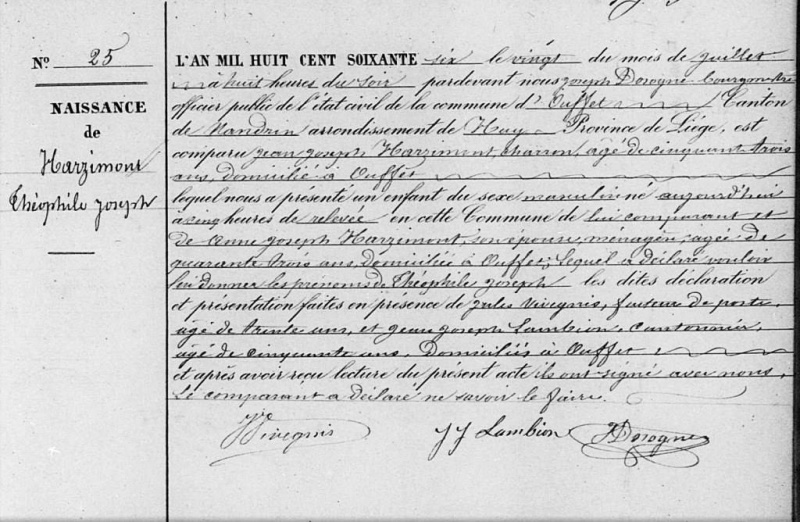 N° 25
NAISSANCE
de
Harzimont
Théophile Joseph
L'AN MIL HUIT CENT SOIXANTE six le vingt du mois de juillet
à huit heures du soir pardevant nous joseph Dorogne bourgmestre
officier public de l'état civil de la commune d' Ouffet Canton
de Nandrin arrondissement de Huy Province de Liége, est
comparu jean joseph Harzimont charron, agé de cinquante trois
ans, domicilié à Ouffet
lequel nous a présenté un enfant du sexe masculin né aujourd'hui
à cinq heures de relevée en cette Commune de lui comparant et
de Anne joseph Harzimont, son épouse, ménagère, agée de
quarante trois ans, domiciliée à Ouffet; lequel a déclaré vouloir
lui donner les prénoms de Théophile joseph les dites déclaration
et présentation faites en présence de jules Vivegnis, facteur de poste,
agé de trente ans, et jean joseph Lambion, cantonnier,
agé de cinquante ans, Domiciliés à Ouffet
et après avoir reçu lecture du présent acte ils ont signé avec nous,
Le comparant a déclaré ne savoir le faire.
Vivegnis JJ Lambion JDorogne